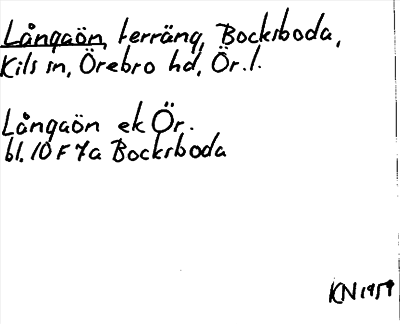 Långaön, terräng, Bocksboda,
Kils sn, Örebro hd, Ör. l.
Långaön ek Ör.
bl. 10 F 7a Bocksboda
KN 1959